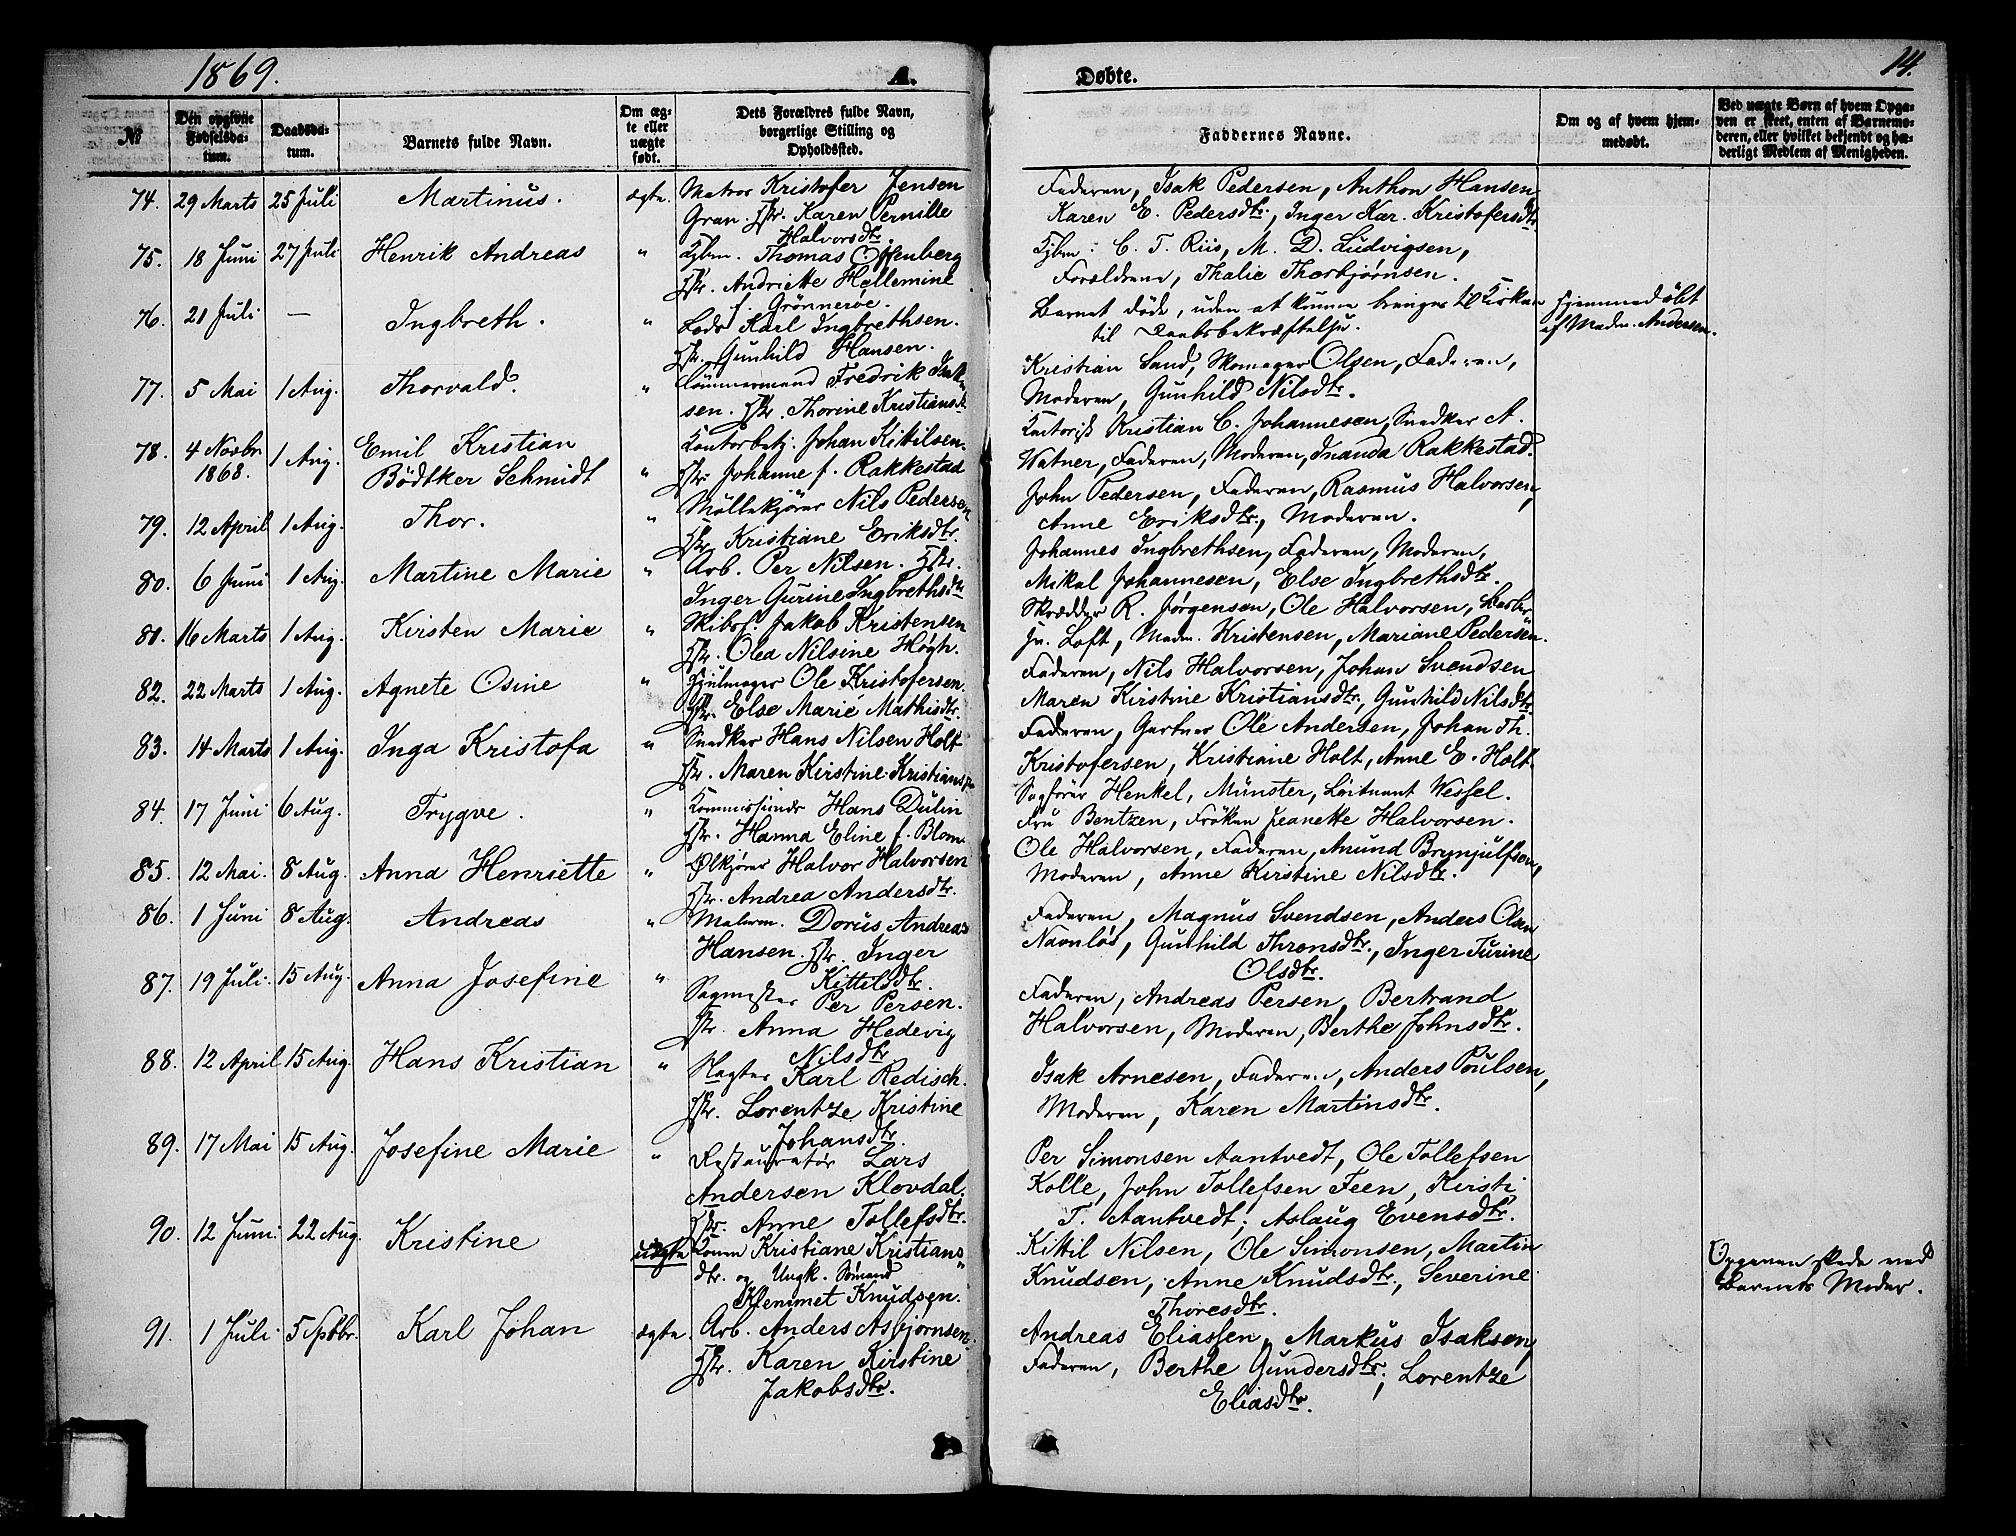 1869.
A.
Døbte.
14.
No
Den opgivne Fødselsdatum.
Daabsdatum.
Barnets fulde Navn.
Om ægte eller uægte født.
Dets Forældres fulde Navn, borgerlige Stilling og Opholdssted.
Faddernes Navne.
Om og af hvem hjemmedøbt.
Ved uægte Børn af hvem Opgaven er skeet, enten af Barnemoderen, eller hvilket bekjendt og hæderligt Medlem af Menigheden.
74. 29 Marts 25 Juli Martinus. ægte. Matros Kristofer Jensen
Gran. Hstr. Karen Pernille
Halvorsdtr.
Faderen, Isak Pedersen, Anthon Hansen
Karen E. Pedersdtr., Inger Kar. Kristofersdtr.
75. 18 Juni 27 Juli Henrik Andreas " Kjbm. Thomas Offenberg
Hstr. Andriette Hellemine
f. Grønnerøe.
Kjbm: C. T. Riis, M. D. Ludvigsen,
Forældrene, Thalie Thorbjørnsen.
76. 21 Juli — Ingbreth. " Lods Karl Ingbrethsen.
Hstr. Gunhild Hansen.
Barnet døde, uden at kunne bringes til Kirken
til Daabsbekræftelse.
Hjemmedøbt
af Madm. Andersen.
77. 5 Mai 1 Aug. Thorvald. " Tømmermand Fredrik Isak
sen. Hstr. Thorine Kristiansdtr.
Kristian Sand, Skomager Olsen, Faderen,
Moderen, Gunhild Nilsdtr.
78. 4 Novbr. 1868. 1 Aug. Emil Kristian
Bödtker Schmidt " Kontorbetj. Johan Kittilsen.
Hstr Johanne f. Rakkestad
Kontorist Kristian C. Johannesen, Snedker A.
Watner, Faderen, Moderen, Inanda Rakkestad.
79. 12 April 1 Aug. Thor. " Møllekjører Nils Pedersen
Hstr. Kristiane Eriksdtr.
John Pedersen, Faderen, Rasmus Halvorsen,
Anne Eriksdtr., Moderen.
80. 6 Juni 1 Aug. Martine Marie " Arb. Per Nilsen. Hstr.
Inger Gurine Ingbrethsdtr
Johannes Ingbrethsen, Faderen, Moderen,
Mikal Johannesen, Else Ingbrethsdtr.
81. 16 Marts 1 Aug. Kirsten Marie " Skibsf. Jakob Kristensen
Hstr. Olea Nilsine Høgh.
Skrædder R. Jørgensen, Ole Halvorsen,
Loft, Madm. Kristensen, Mariane Pedersen.
82. 22 Marts 1 Aug. Agnete Osine " Hjulmager Ole Kristofersen.
Hstr. Else Marie Mathisdtr.
Faderen, Nils Halvorsen, Johan Svendsen
Maren Kirstine Kristiansdtr., Gunhild Nilsdtr.
83. 14 Marts 1 Aug. Inga Kristofa " Snedker Hans Nilsen Holt
Hstr. Maren Kirstine Kristiansdtr
Faderen, Gartner Ole Andersen, Johan Th.
Kristofersen, Kristiane Holt, Anne E. Holt.
84. 17 Juni 6 Aug. Trygve. " Kommissionær Hans Dulin
Hstr. Hanna Eline f. Blom.
Sagfører Henkel, Münster, Løitnant Wessel.
Fru Bentzen, Frøken Jeanette Halvorsen.
85. 12 Mai. 8 Aug. Anna Henriette " Ølkjører Halvor Halvorsen
Hstr. Andrea Andersdtr.
Ole Halvorsen, Faderen, Anund Brynjulfsen,
Moderen, Anne Kirstine Nilsdtr.
86. 1 Juni 8 Aug. Andreas " Malerm. Dorus Andreas
Hansen. Hstr. Inger
Kittilsdtr.
Faderen, Magnus Svendsen, Anders Olsen
Navnløs, Gunhild Thronsdtr., Inger Turine
Olsdtr.
87. 19 Juli. 15 Aug. Anna Josefine " Sagmester Per Persen.
Hstr. Anna Hedevig
Nilsdtr.
Faderen, Andreas Persen, Bertrand
Halvorsen, Moderen, Berthe Johnsdtr.
88. 12 April 15 Aug. Hans Kristian " Slagter Karl Redisch.
Hstr. Lorentze Kristine
Johansdtr.
Isak Arnesen, Faderen, Anders Poulsen,
Moderen, Karen Martinsdtr.
89. 17 Mai 15 Aug. Josefine Marie " Restauratør Lars
Andersen Klovdal.
Hstr. Anne Tollefsdtr.
Per Simonsen Aantvedt, Ole Tollefsen
Kolle, John Tollefsen Feen, Kirsti
T. Aantvedt, Aslaug Evensdtr.
90. 12 Juni. 22 Aug. Kristine uægte Konen Kristiane Kristians
dtr. og Ungk. Sømand
Klemmet Knudsen.
Kittil Nilsen, Ole Simonsen, Martin
Knudsen, Anne Knudsdtr., Severine
Thoresdtr.
Opgaven skede ved
Barnets Moder.
91. 1 Juli. 5 Spbbr. Karl Johan ægte. Arb. Anders Asbjørnsen.
Hstr. Karen Kirstine
Jakobsdtr.
Andreas Eliassen, Markus Isaksen,
Faderen, Berthe Gundersdtr., Lorentze
Eliasdtr.